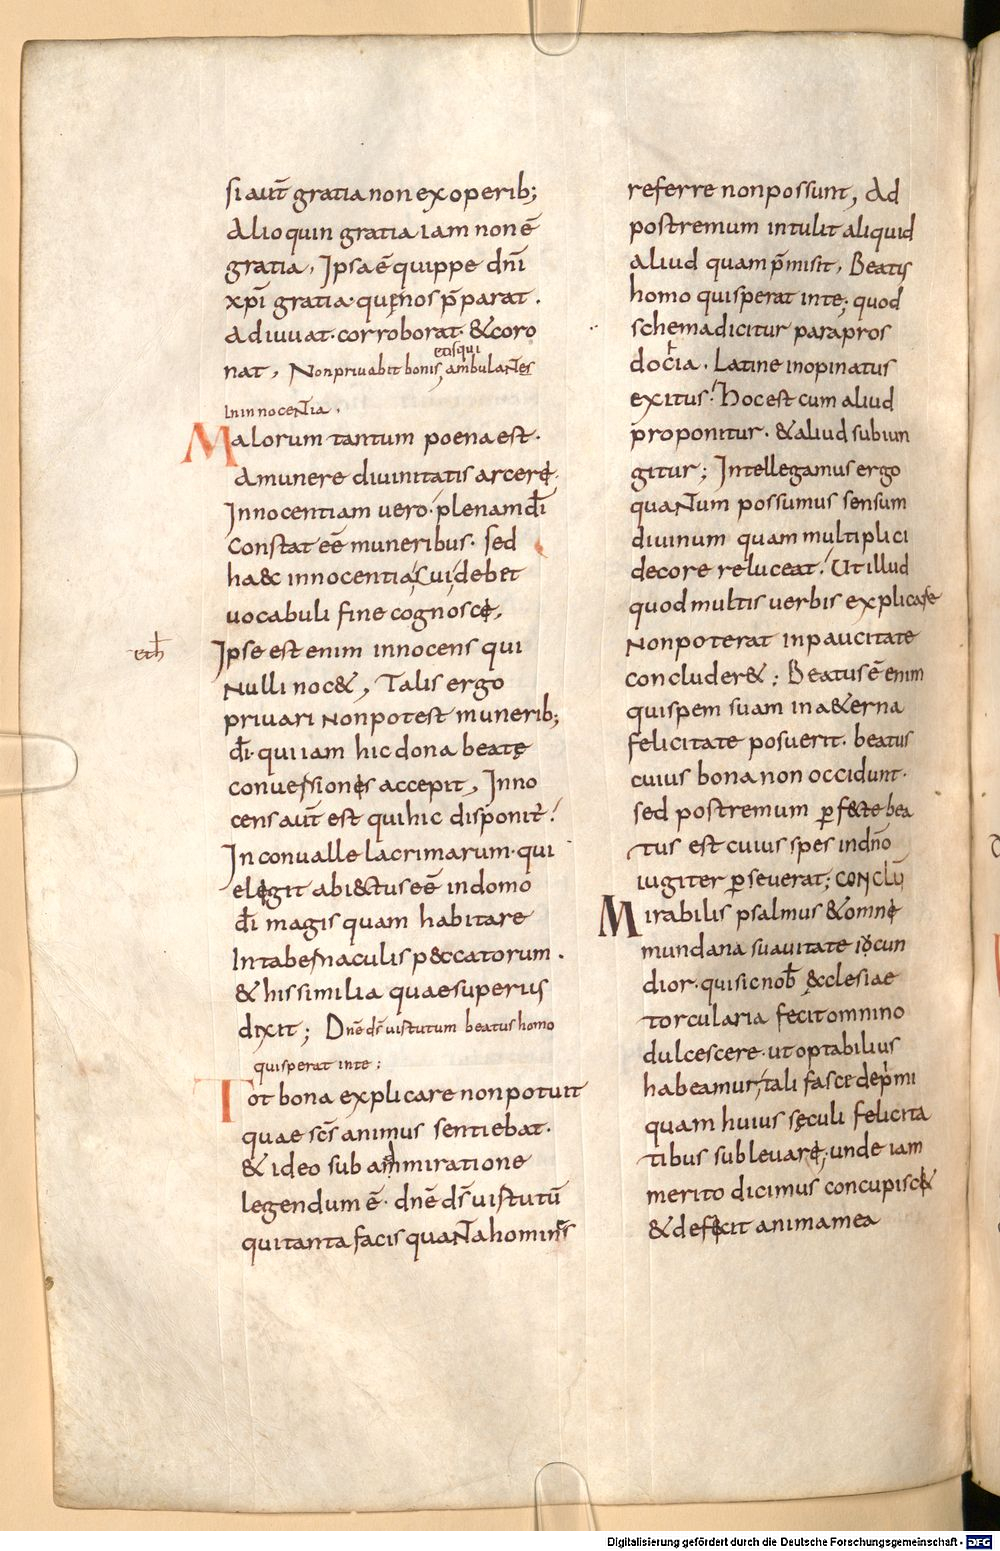 si aut̄ gratia non ex operib;
Alioquin gratia iam non ē
gratia, Ipsa ē quippe dn̄i
xp̄i gratia· quę nos p̄parat.
Adiuuat· corroborat· & coro
nat, Non priuabit bonis etisqui ambulaNtes
In innoceNtia.
Malorum tantum poena est·
A munere diuinitatis arcere·
Innocentiam uero· plenam dī
Constat eē muneribus· sed
haec innocentia, cui, debet
uocabuli fine cognosce,
eth
Ipse est enim innocens qui
Nulli noc&, Talis ergo
priuari Non potest munerib;
dī· qui iam hic dona beatę
conuersiones accepit, Inno
cens aut̄ est qui hic disponit:
In conualle lacrimarum· qui
elegit abiectus eē in domo
dī magis quam habitare
In tabernaculis peccatorum.
& his similia quae superius
dixit; Dn̄e ds̄ uirtutum beatus homo
qui sperat in te;
Tot bona explicare non potuit
quae sc̄s animus sentiebat·
& ideo sub ammiratione
legendum ē· dn̄e ds̄ uirtutū
qui tanta facis quaNta homines
referre non possunt, Ad
postremum intulit aliquid
aliud quam p̄misit, Beatis
homo qui sperat in te; quod
schema dicitur parapros
docia. Latine inopinatus
exitus: Hoc est cum aliud
proponitur· & aliud subiun
gitur; Intellegamus ergo
quaNtum possumus sensum
diuinum quam multiplici
decore reluceat: Ut illud
quod multis uerbis explicare
Non poterat in paucitate
concluder&; Beatus ē enim
qui spem suam in a&erna
felicitate posuerit· beatus
cuius bona non occidunt·
sed postremum perf&te bea
tus est cuius spes in dn̄o
iugiter perseuerat; CONCLŪ
Mirabilis psalmus & omne
mundana suauitate iocun
dior· qui sic nob̄ ecclesiae
torcularia fecit omnino
dulcescere· ut optabilius
habeamur, tali fasce depmi
quam huius sęculi felicita
tibus subleuare; unde iam
merito dicimus concupisc&
& defecit anima mea
Digitalisierung gefördert durch die Deutsche Forschungsgemeinschaft - DFG